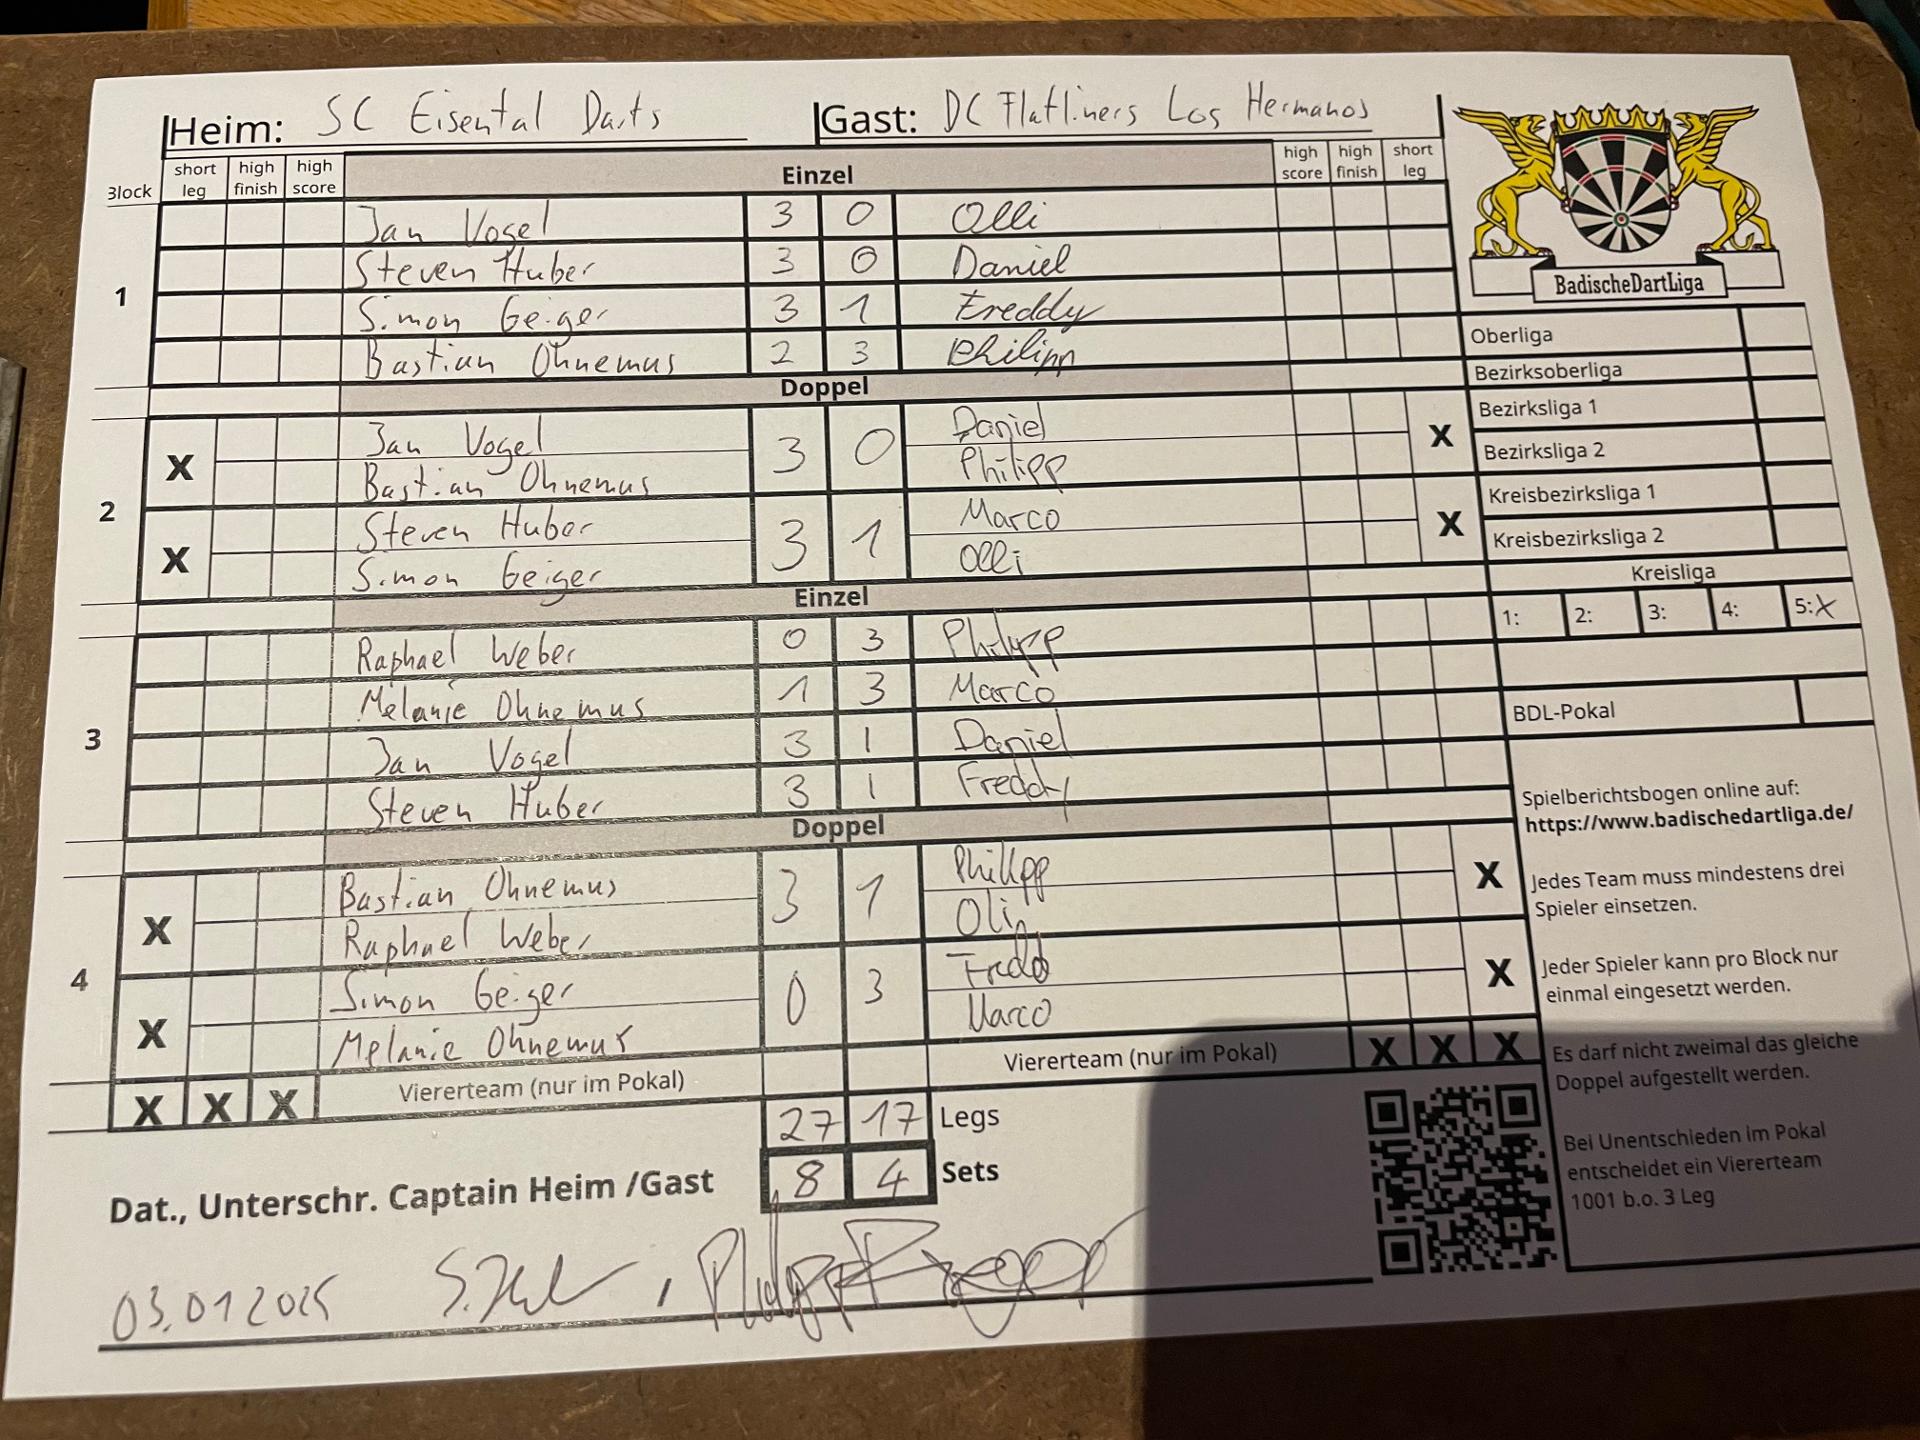 Heim: SC Eisental Darts Gast: DC Flatliners Los Hermanos
Block short leg high finish high score Einzel high score high finish short leg
1
Jan Vogel 3 0 Olli
Steven Huber 3 0 Daniel
Simon Geiger 3 1 Freddy
Bastian Ohnemus 2 3 Philipp
Doppel
2
X Jan Vogel 3 0 Daniel X
Bastian Ohnemus Philipp
X Steven Huber 3 1 Marco X
Simon Geiger Olli
Einzel
3
Raphael Weber 0 3 Philipp
Melanie Ohnemus 1 3 Marco
Jan Vogel 3 1 Daniel
Steven Huber 3 1 Freddy
Doppel
4
X Bastian Ohnemus 3 1 Philipp X
Raphael Weber Oli
X Simon Geiger 0 3 Fredd X
Melanie Ohnemus Marco
X X X Viererteam (nur im Pokal) Viererteam (nur im Pokal) X X X
27 17 Legs
8 4 Sets
Dat., Unterschr. Captain Heim /Gast
03.01 2025
BadischeDartLiga
Oberliga
Bezirksoberliga
Bezirksliga 1
Bezirksliga 2
Kreisbezirksliga 1
Kreisbezirksliga 2
Kreisliga
1: 2: 3: 4: 5: X
BDL-Pokal
Spielberichtsbogen online auf:
https://www.badischedartliga.de/
Jedes Team muss mindestens drei
Spieler einsetzen.
Jeder Spieler kann pro Block nur
einmal eingesetzt werden.
Es darf nicht zweimal das gleiche
Doppel aufgestellt werden.
Bei Unentschieden im Pokal
entscheidet ein Viererteam
1001 b.o. 3 Leg